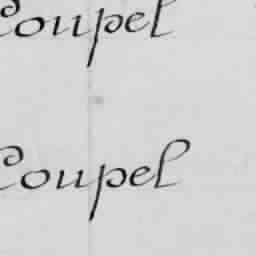 Coupel
Coupel